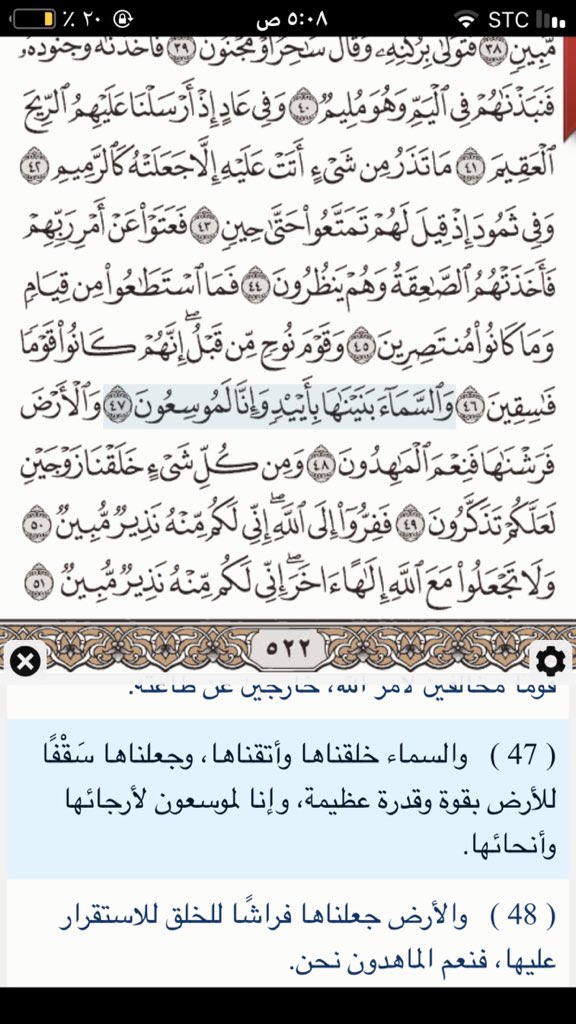 ٪ ٢٠ ٥:٠٨ ص STC
مُّبِينٍ ٣٨ فَتَوَلَّىٰ بِرُكْنِهِۦ وَقَالَ سَٰحِرٌ أَوْ مَجْنُونٌ ٣٩ فَأَخَذْنَٰهُ وَجُنُودَهُۥ
فَنَبَذْنَٰهُمْ فِي ٱلْيَمِّ وَهُوَ مُلِيمٌ ٤٠ وَفِي عَادٍ إِذْ أَرْسَلْنَا عَلَيْهِمُ ٱلرِّيحَ
ٱلْعَقِيمَ ٤١ مَا تَذَرُ مِن شَيْءٍ أَتَتْ عَلَيْهِ إِلَّا جَعَلَتْهُ كَٱلرَّمِيمِ ٤٢
وَفِي ثَمُودَ إِذْ قِيلَ لَهُمْ تَمَتَّعُوا۟ حَتَّىٰ حِينٍ ٤٣ فَعَتَوْا۟ عَنْ أَمْرِ رَبِّهِمْ
فَأَخَذَتْهُمُ ٱلصَّٰعِقَةُ وَهُمْ يَنظُرُونَ ٤٤ فَمَا ٱسْتَطَٰعُوا۟ مِن قِيَامٍ
وَمَا كَانُوا۟ مُنتَصِرِينَ ٤٥ وَقَوْمَ نُوحٍ مِّن قَبْلُ ۖ إِنَّهُمْ كَانُوا۟ قَوْمًا
فَٰسِقِينَ ٤٦ وَٱلسَّمَآءَ بَنَيْنَٰهَا بِأَيْي۟دٍ وَإِنَّا لَمُوسِعُونَ ٤٧ وَٱلْأَرْضَ
فَرَشْنَٰهَا فَنِعْمَ ٱلْمَٰهِدُونَ ٤٨ وَمِن كُلِّ شَيْءٍ خَلَقْنَا زَوْجَيْنِ
لَعَلَّكُمْ تَذَكَّرُونَ ٤٩ فَفِرُّوٓا۟ إِلَى ٱللَّهِ ۖ إِنِّي لَكُم مِّنْهُ نَذِيرٌ مُّبِينٌ ٥٠
وَلَا تَجْعَلُوا۟ مَعَ ٱللَّهِ إِلَٰهًا ءَاخَرَ ۖ إِنِّي لَكُم مِّنْهُ نَذِيرٌ مُّبِينٌ ٥١
٥٢٢
قومًا مخالفين لأمر الله، خارجين عن طاعته.
( 47 ) والسماء خلقناها وأتقناها، وجعلناها سَقْفًا
للأرض بقوة وقدرة عظيمة، وإنا لموسعون لأرجائها
وأنحائها.
( 48 ) والأرض جعلناها فراشًا للخلق للاستقرار
عليها، فنعم الماهدون نحن.